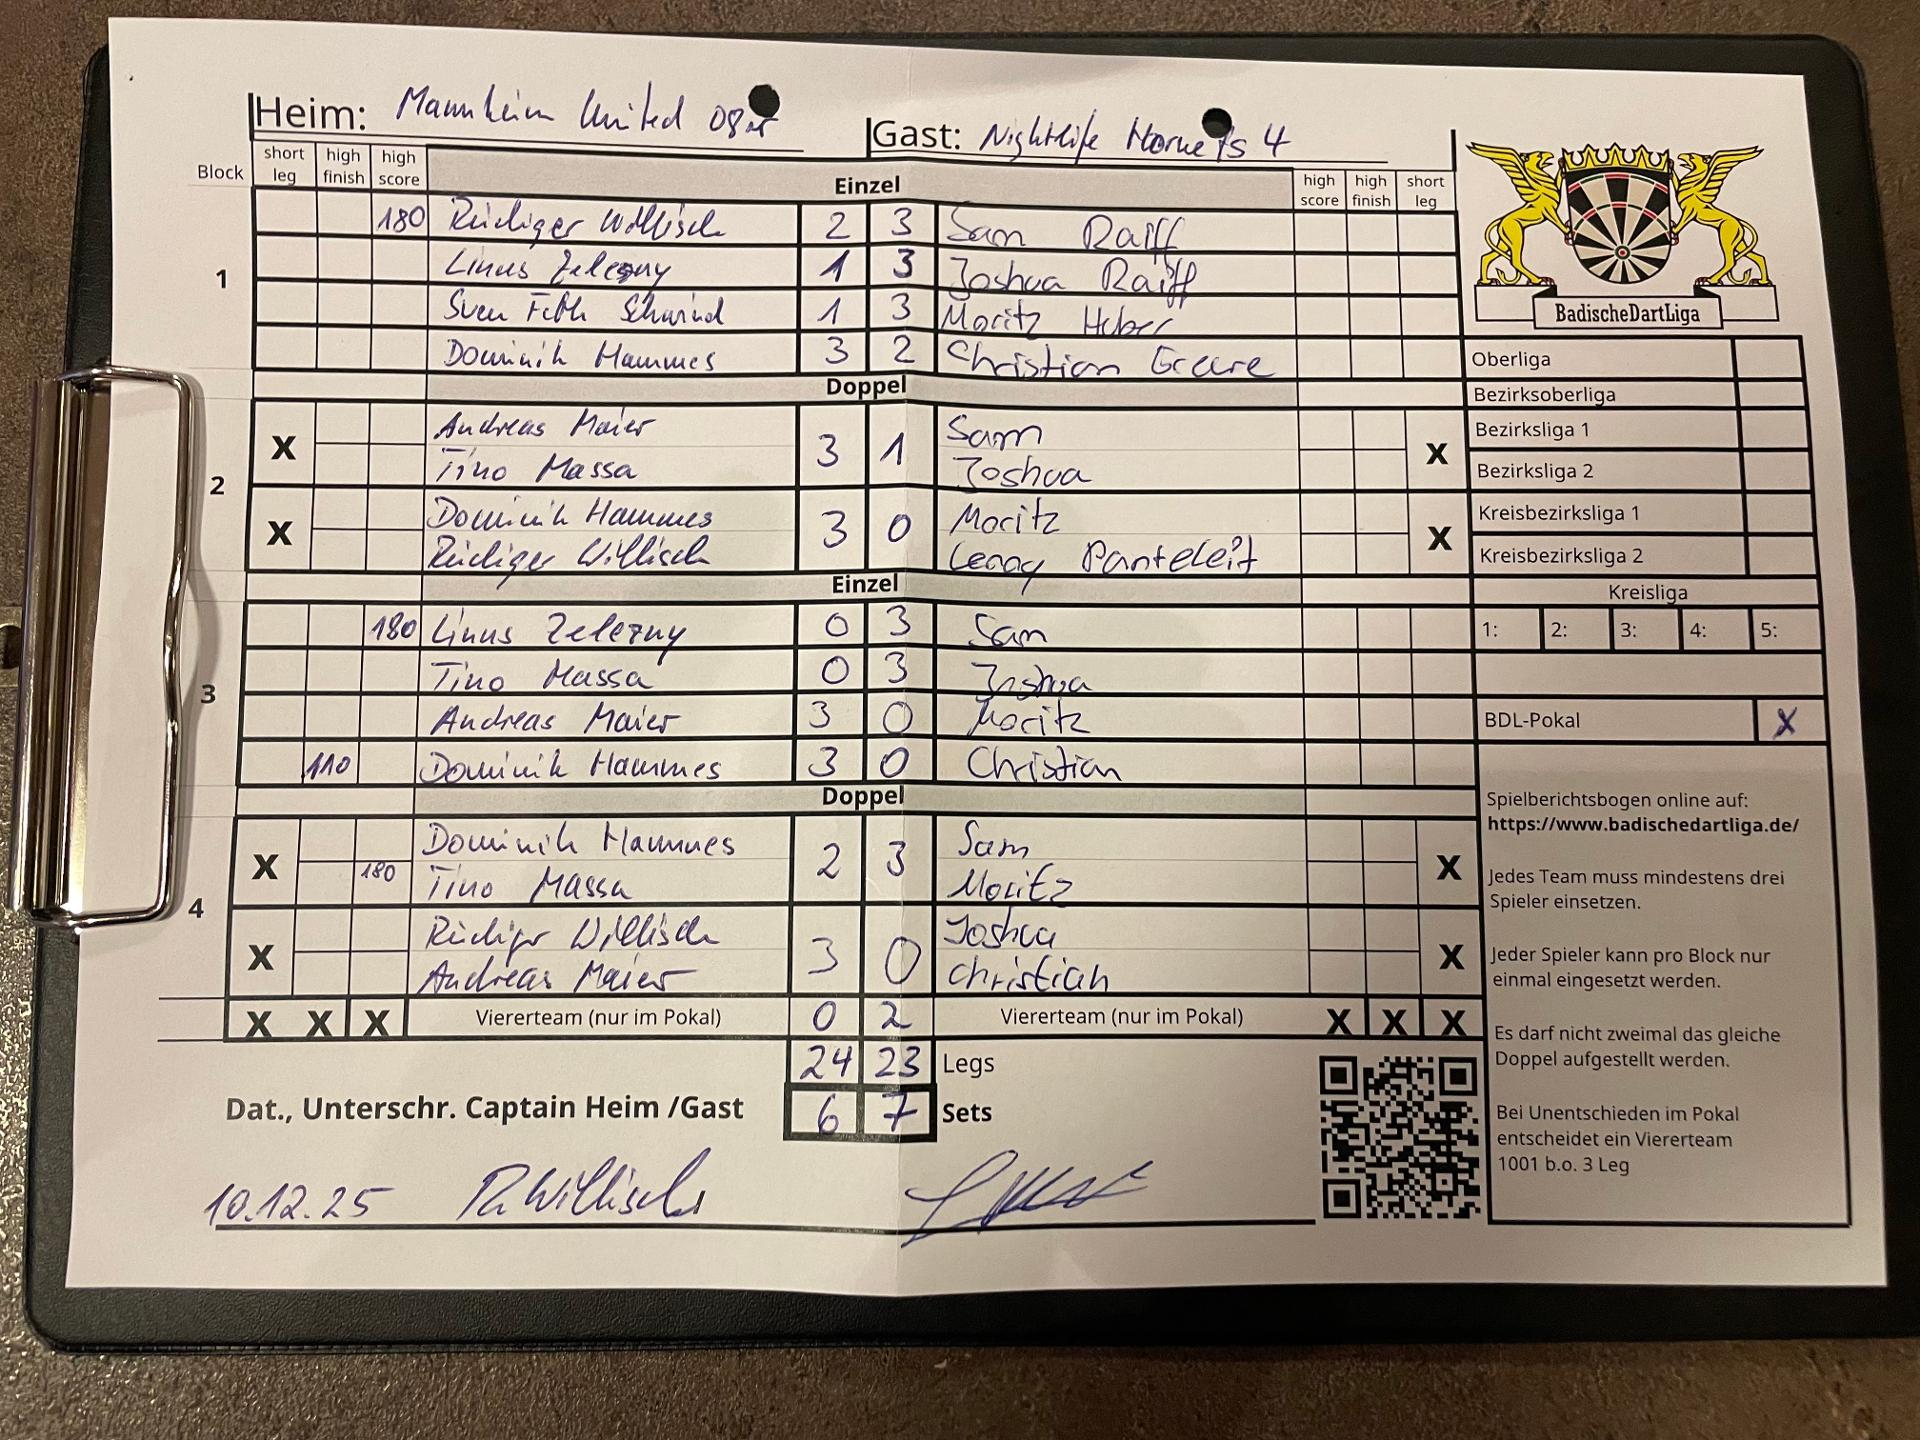 Heim: Mannheim United 08
Gast: Nightlife Hornets 4
Block short leg high finish high score Einzel high score high finish short leg
1
180 Rüdiger Willisch 2 3 Sam Raiff
Linus Zelezny 1 3 Joshua Raiff
Sven Feth Schwind 1 3 Moritz Huber
Dominik Hammes 3 2 Christian
Doppel
2
X Andreas Maier 3 1 Sam X
Tino Massa Joshua
X Dominik Hammes 3 0 Moritz X
Rüdiger Willisch Lenny Panteleit
Einzel
3
180 Linus Zelezny 0 3 Sam
Tino Massa 0 3 Joshua
Andreas Maier 3 0 Moritz
110 Dominik Hammes 3 0 Christian
Doppel
4
X Dominik Hammes 2 3 Sam X
180 Tino Massa Moritz
X Rüdiger Willisch 3 0 Joshua X
Andreas Maier Christian
X X X Viererteam (nur im Pokal) 0 2 Viererteam (nur im Pokal) X X X
24 23 Legs
Dat., Unterschr. Captain Heim /Gast 6 7 Sets
10.12.25 R. Willisch
BadischeDartLiga
Oberliga
Bezirksoberliga
Bezirksliga 1
Bezirksliga 2
Kreisbezirksliga 1
Kreisbezirksliga 2
Kreisliga
1: 2: 3: 4: 5:
BDL-Pokal X
Spielberichtsbogen online auf:
https://www.badischedartliga.de/
Jedes Team muss mindestens drei
Spieler einsetzen.
Jeder Spieler kann pro Block nur
einmal eingesetzt werden.
Es darf nicht zweimal das gleiche
Doppel aufgestellt werden.
Bei Unentschieden im Pokal
entscheidet ein Viererteam
1001 b.o. 3 Leg